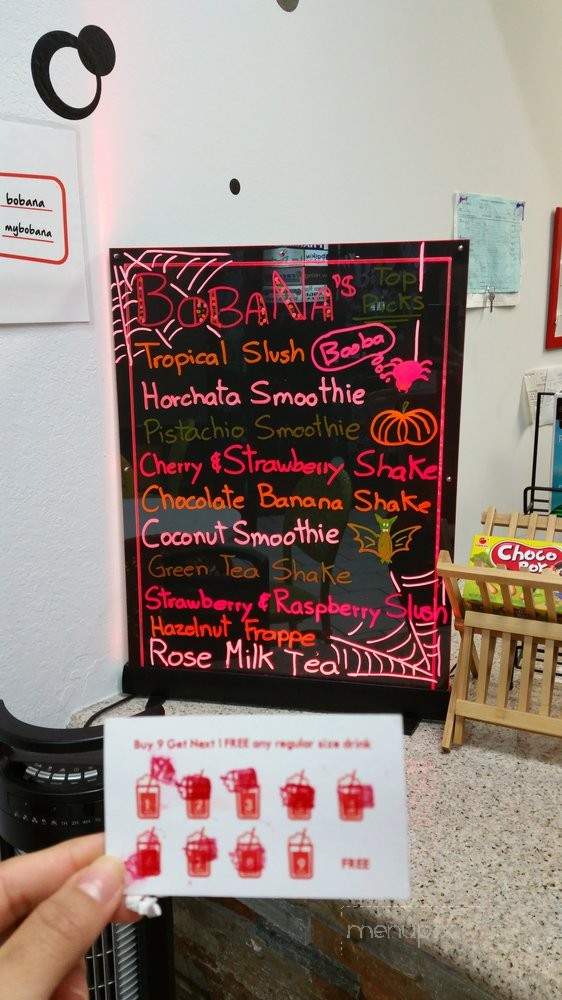 bobana
mybobana
BOBANA's Top Picks
Tropical Slush Booba
Horchata Smoothie
Pistachio Smoothie
Cherry & Strawberry Shake
Chocolate Banana Shake
Coconut Smoothie
Green Tea Shake
Strawberry & Raspberry Slush
Hazelnut Frappe
Rose Milk Tea
Choco
Boy
Buy 9 Get Next 1 FREE any regular size drink
1 2 3
9 FREE